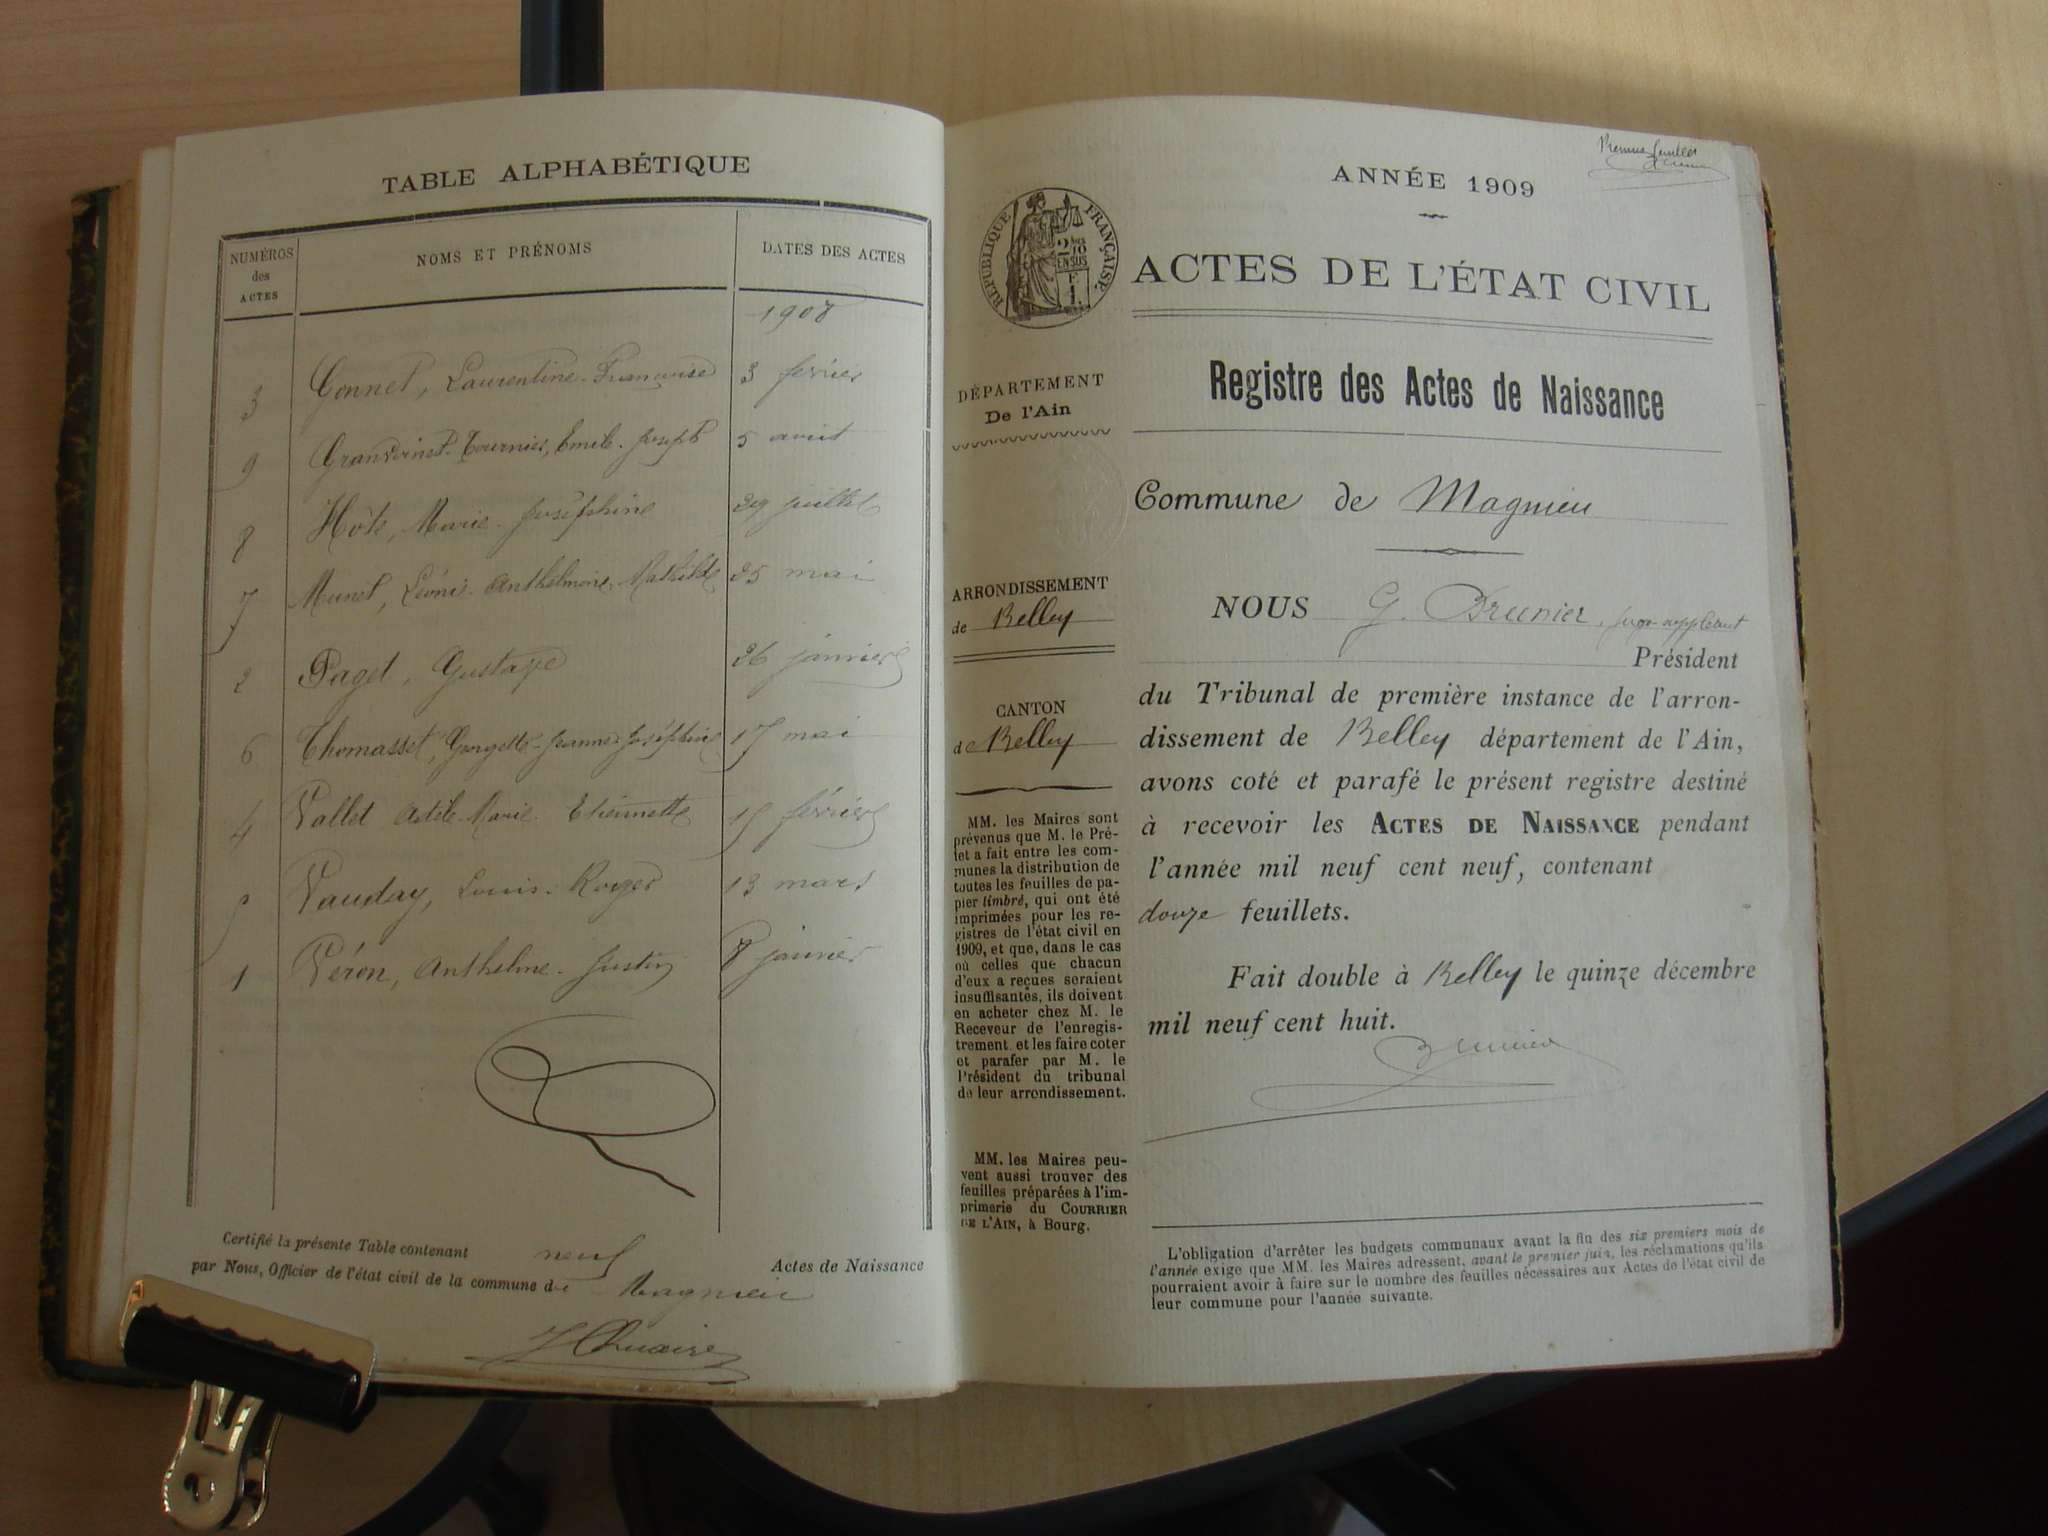 TABLE ALPHABÉTIQUE
NUMÉROS des ACTES
NOMS ET PRÉNOMS
DATES DES ACTES
1908
3 Gonnet, Laurentine-Françoise 3 février
9 Grandvinet-Tournier, Emile-Joseph 5 août
8 Hôte, Marie-Joséphine 29 juillet
7 Munet, Léonie-Anthelmine-Mathilde 25 mai
2 Paget, Gustave 26 janvier
6 Thomasset, Georgette-Jeanne-Joséphine 17 mai
4 Vallet Adèle-Marie-Etiennette 15 février
5 Vauday, Louis-Roger 13 mars
1 Véron, Anthelme-Justin 8 janvier
Certifié la présente Table contenant neuf Actes de Naissance
par Nous, Officier de l'état civil de la commune de Magnieu
Premier feuillet
ANNÉE 1909
RÉPUBLIQUE FRANÇAISE
2/10 EN SUS
ACTES DE L'ÉTAT CIVIL
DÉPARTEMENT
De l'Ain
Registre des Actes de Naissance
Commune de Magnieu
ARRONDISSEMENT
de Belley
CANTON
de Belley
MM. les Maires sont
prévenus que M. le Pré-
fet a fait entre les com-
munes la distribution de
toutes les feuilles de pa-
pier timbré, qui ont été
imprimées pour les re-
gistres de l'état civil en
1909, et que, dans le cas
où celles que chacun
d'eux a reçues seraient
insuffisantes, ils doivent
en acheter chez M. le
Receveur de l'enregis-
trement et les faire coter
et parafer par M. le
Président du tribunal
de leur arrondissement.
MM. les Maires peu-
vent aussi trouver des
feuilles préparées à l'im-
primerie du COURRIER
DE L'AIN, à Bourg.
NOUS G. Brunier, juge suppléant
Président
du Tribunal de première instance de l'arron-
dissement de Belley département de l'Ain,
avons coté et parafé le présent registre destiné
à recevoir les ACTES DE NAISSANCE pendant
l'année mil neuf cent neuf, contenant
douze feuillets.
Fait double à Belley le quinze décembre
mil neuf cent huit.
Brunier
L'obligation d'arrêter les budgets communaux avant la fin des six premiers mois de
l'année exige que MM. les Maires adressent, avant le premier juin, les réclamations qu'ils
pourraient avoir à faire sur le nombre des feuilles nécessaires aux Actes de l'état civil de
leur commune pour l'année suivante.